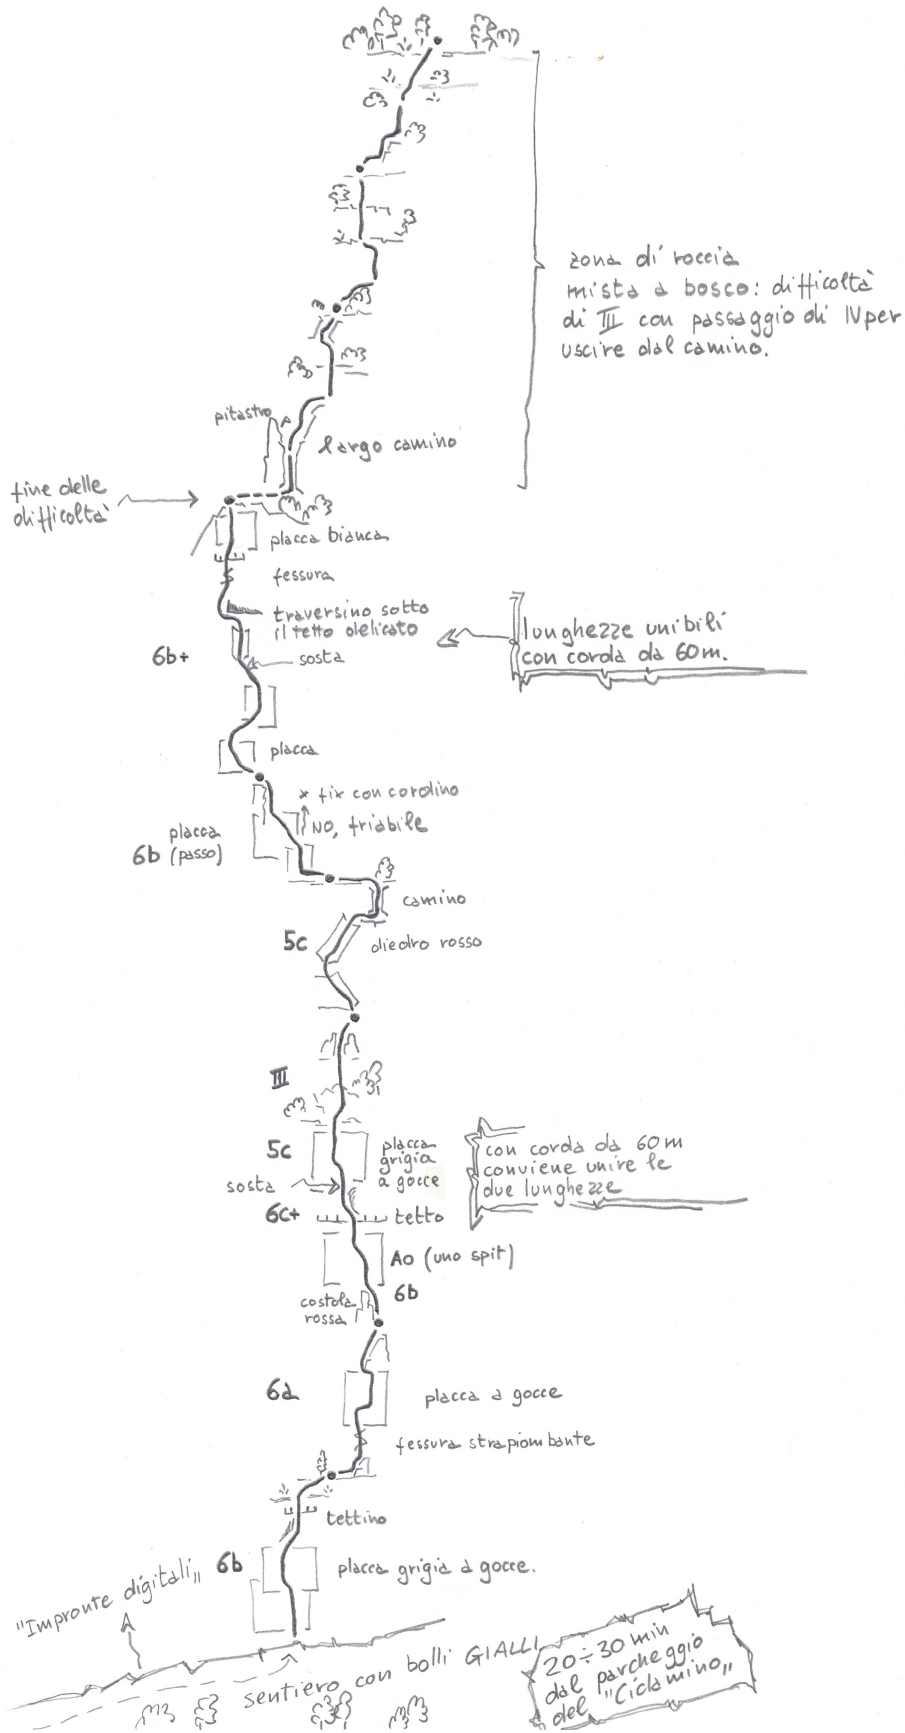 zona di roccia
mista a bosco: difficoltà
di III con passaggio di IV per
uscire dal camino.
pilastro
largo camino
fine delle
difficoltà
placca bianca
fessura
traversino sotto
il tetto delicato
6b+
sosta
lunghezze unibili
con corda da 60m.
placca
x fix con cordino
NO, friabile
placca
6b (passo)
camino
5c
diedro rosso
III
5c
placca
grigia
a gocce
sosta
con corda da 60m
conviene unire le
due lunghezze
6c+
tetto
A0 (uno spit)
6b
costola
rossa
6a
placca a gocce
fessura strapiombante
tettino
6b
placca grigia a gocce.
"Impronte digitali"
sentiero con bolli GIALLI
20÷30 min
dal parcheggio
del "Ciclamino"